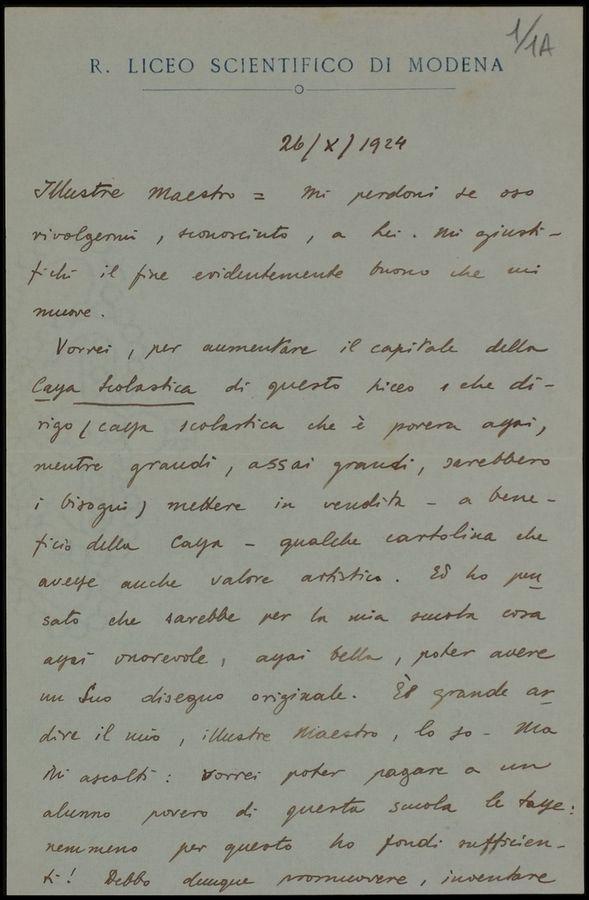 1/1A
R. LICEO SCIENTIFICO DI MODENA
26/X/1924
Illustre Maestro = Mi perdoni se oso
rivolgermi, sconosciuto, a Lei. Mi giusti-
fichi il fine evidentemente buono che mi
muove.
Vorrei, per aumentare il capitale della
Cassa Scolastica di questo Liceo, che di-
rigo (cassa scolastica che è povera assai,
mentre grandi, assai grandi, sarebbero
i bisogni) mettere in vendita - a bene-
ficio della Cassa - qualche cartolina che
avesse anche valore artistico. Ed ho pen
sato che sarebbe per la mia scuola cosa
assai onorevole, assai bella, poter avere
un Suo disegno originale. È grande ar
dire il mio, illustre Maestro, lo so - Ma
Mi ascolti: Vorrei poter pagare a un
alunno povero di questa scuola le tasse:
nemmeno per questo ho fondi sufficien-
ti! Debbo dunque promuovere, inventare